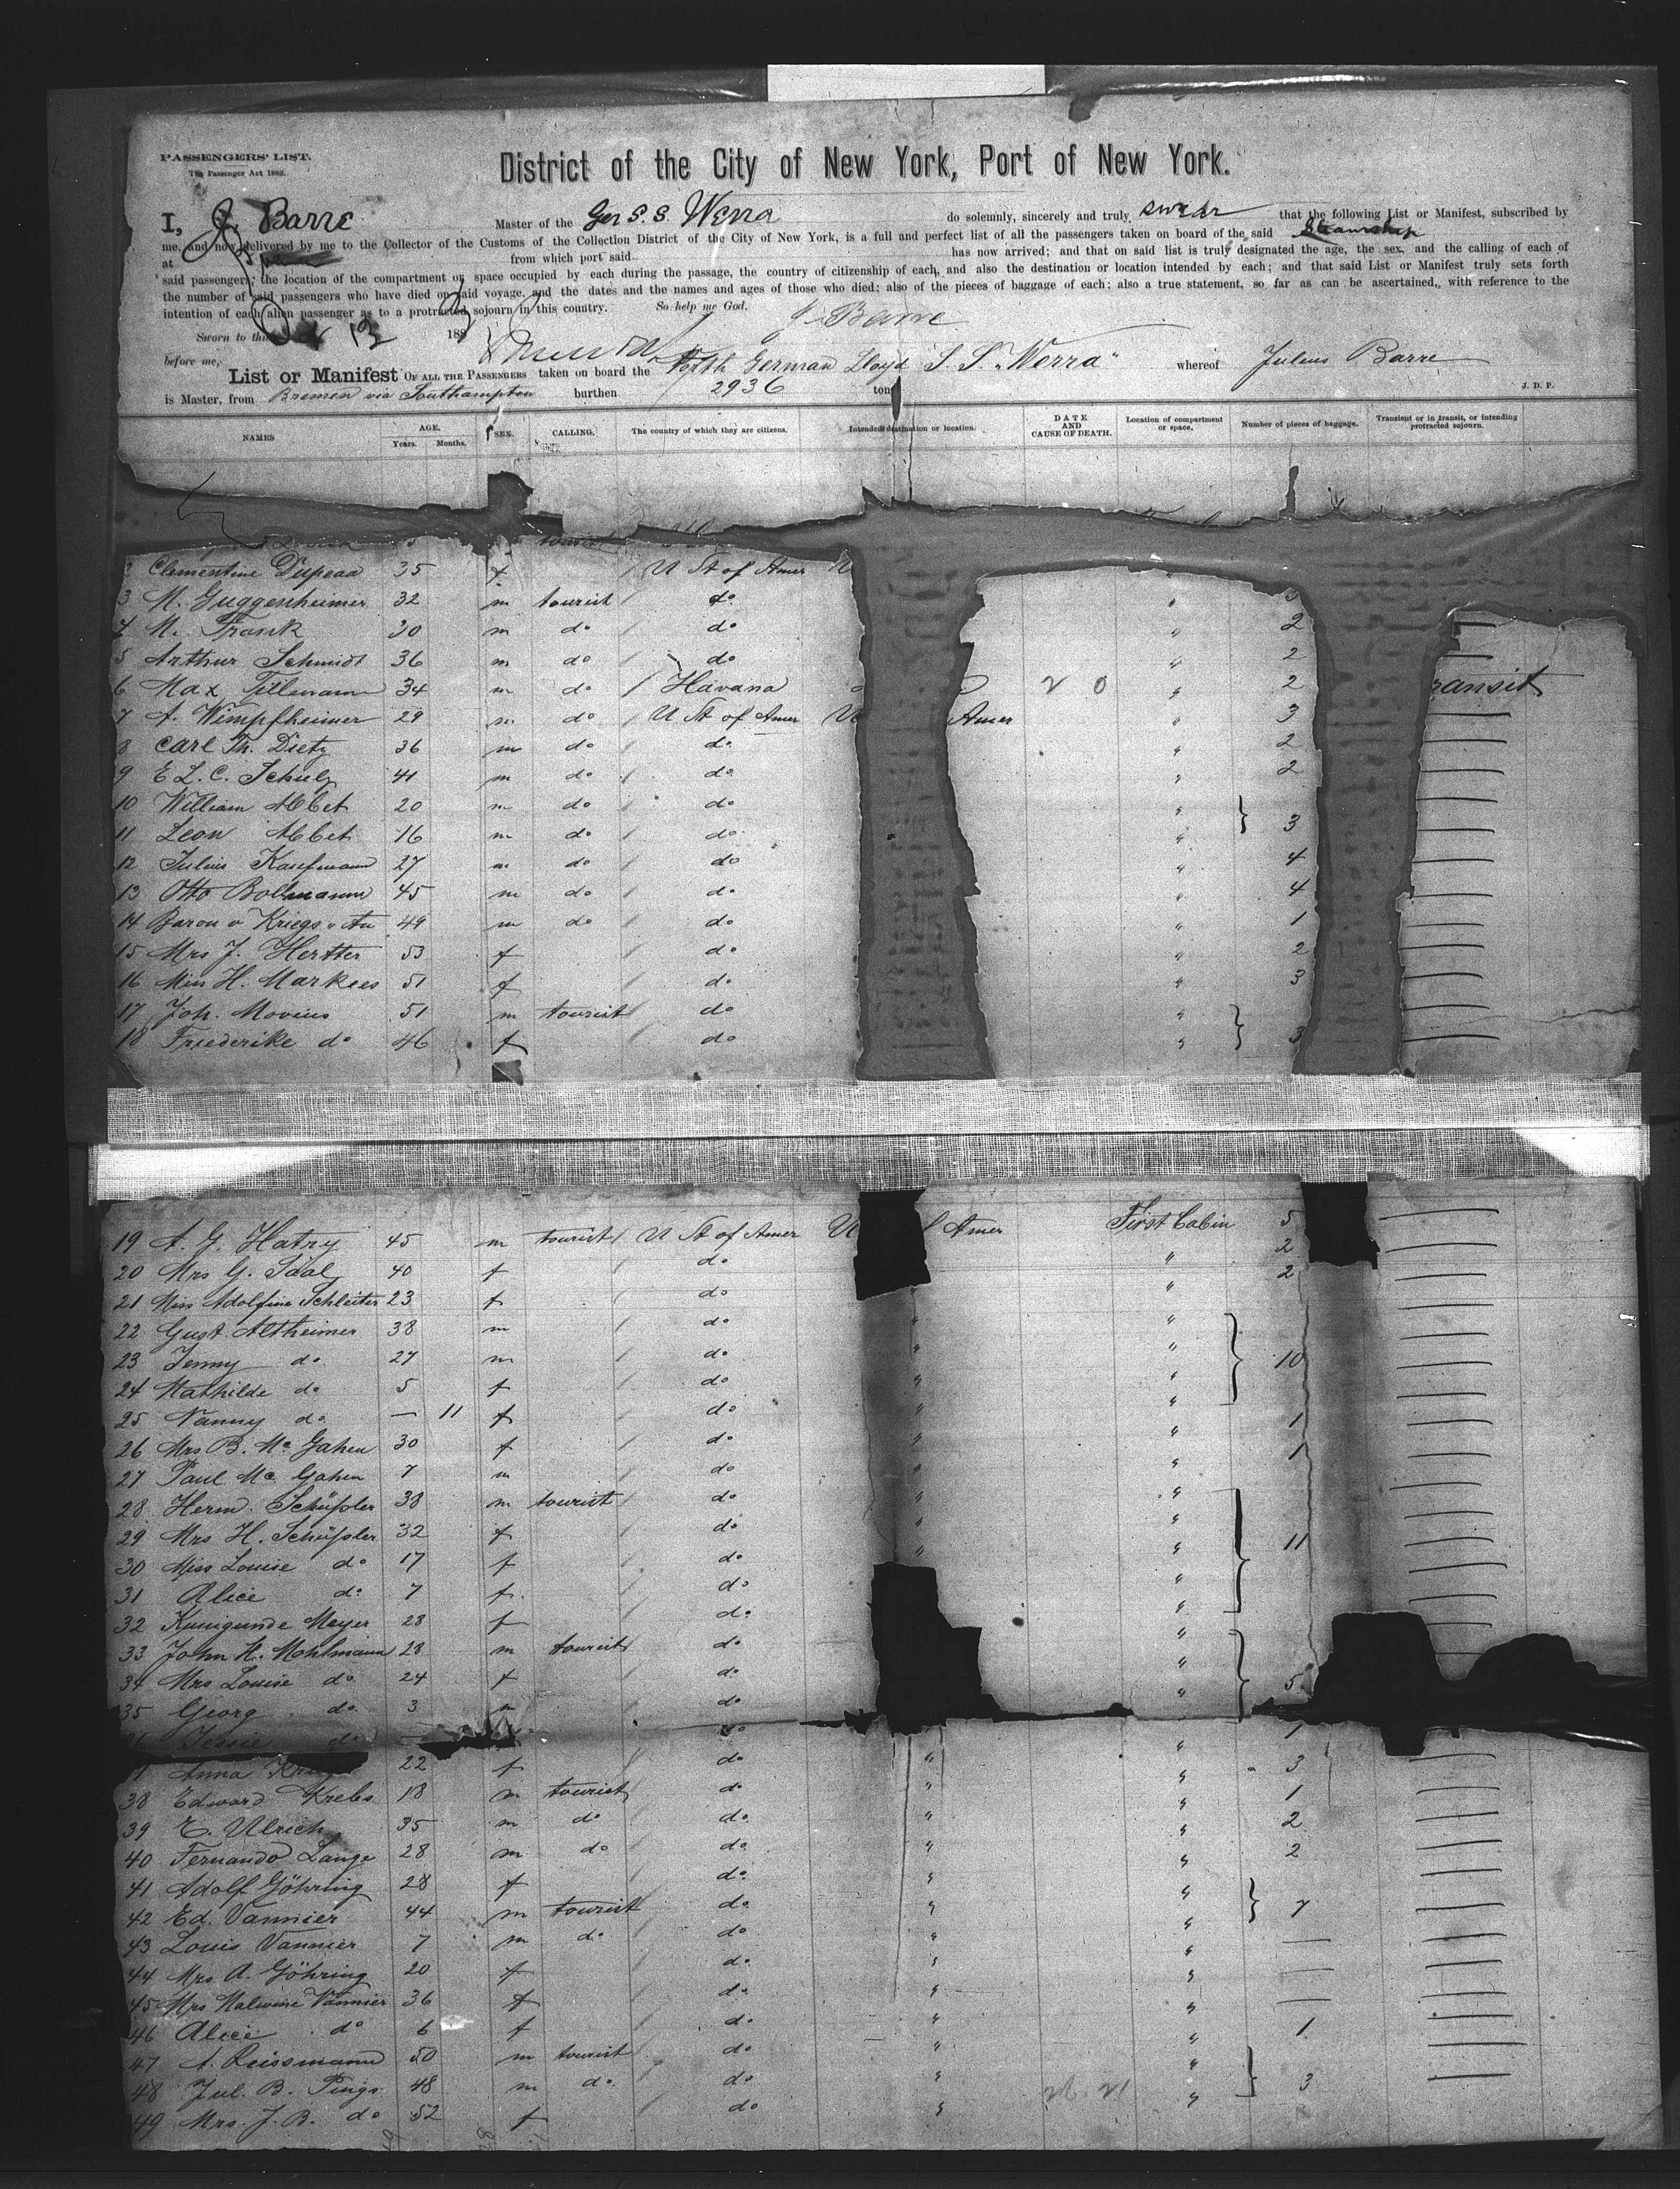 PASSENGERS' LIST.
The Passenger Act 1882.
District of the City of New York, Port of New York.
I, J. Barre Master of the Ger S.S. Werra do solemnly, sincerely and truly swear that the following List or Manifest, subscribed by
me, and now delivered by me to the Collector of the Customs of the Collection District of the City of New York, is a full and perfect list of all the passengers taken on board of the said Steamship
at from which port said has now arrived; and that on said list is truly designated the age, the sex, and the calling of each of
said passengers, the location of the compartment or space occupied by each during the passage, the country of citizenship of each, and also the destination or location intended by each; and that said List or Manifest truly sets forth
the number of said passengers who have died on said voyage, and the dates and the names and ages of those who died; also of the pieces of baggage of each; also a true statement, so far as can be ascertained, with reference to the
intention of each alien passenger as to a protracted sojourn in this country. So help me God.
J. Barre
Sworn to this Oct 13 188
before me,
List or Manifest OF ALL THE PASSENGERS taken on board the North German Lloyd S. S. "Werra" whereof Julius Barre
is Master, from Bremen via Southampton burthen 2936 tons J. D. P.
NAMES AGE. Years. Months. SEX. CALLING. The country of which they are citizens. Intended destination or location. DATE AND CAUSE OF DEATH. Location of compartment or space. Number of pieces of baggage. Transient or in transit, or intending protracted sojourn.
tourist
2 Clementine Dupeaa 35 f U St of Amer "
3 M. Guggenheimer 32 m tourist do " 3
4 M. Frank 30 m do do " 2
5 Arthur Schmidt 36 m do do " 2
6 Max Tillmann 34 m do Havana 20 " 2 ransit
7 A. Wimpfheimer 29 m do U St of Amer U Amer " 3
8 Carl Th. Dietz 36 m do do " 2
9 E L. C. Schulz 41 m do do " 2
10 William Abbet 20 m do do "
11 Leon Abbet 16 m do do " } 3
12 Julius Kaufmann 27 m do do " 4
13 Otto Bollmann 45 m do do " 4
14 Baron v Kriegs v Au 49 m do do " 1
15 Mrs J. Hertter 53 f do " 2
16 Miss H. Markees 51 f do " 3
17 Joh. Movius 51 m tourist do "
18 Friederike do 46 f do " } 3
19 A. G. Hatry 45 m tourist U St of Amer U f Amer First Cabin 5
20 Mrs G. Idal 40 f do " 2
21 Miss Adolfine Schleiter 23 f do " " 2
22 Gust. Altheimer 38 m do " "
23 Jenny do 27 m do " " } 10
24 Mathilde do 5 f do " "
25 Nanny do — 11 f do " "
26 Mrs B. Mc Gahen 30 f do " " 1
27 Paul Mc Gahen 7 m do " " 1
28 Herm. Schüßler 38 m tourist do " "
29 Mrs H. Schüßler 32 f do " "
30 Miss Louise do 17 f do " " } 11
31 Alice do 7 f do "
32 Kunigunde Meyer 28 f do "
33 John H. Mohlmann 28 m tourist do "
34 Mrs Louise do 24 f do " } 5
35 Georg do 3 m do "
Jessie do do "
Anna 22 f do " " 1
38 Edward Krebs 18 m tourist do " " 3
39 E. Ulrich 35 m do do " " 1
40 Fernando Lange 28 m do do " " 2
41 Adolf Göhring 28 f do " " 2
42 Ed. Vannier 44 m tourist do " " } 7
43 Louis Vannier 7 m do do " "
44 Mrs A. Göhring 20 f do " "
45 Mrs Malwine Vannier 36 f do " "
46 Alice do 6 f do " "
47 A. Reissmann 50 m tourist do " " 1
48 Jul. B. Pings 48 m do do " " } 3
49 Mrs. J. B. do 52 f do " "